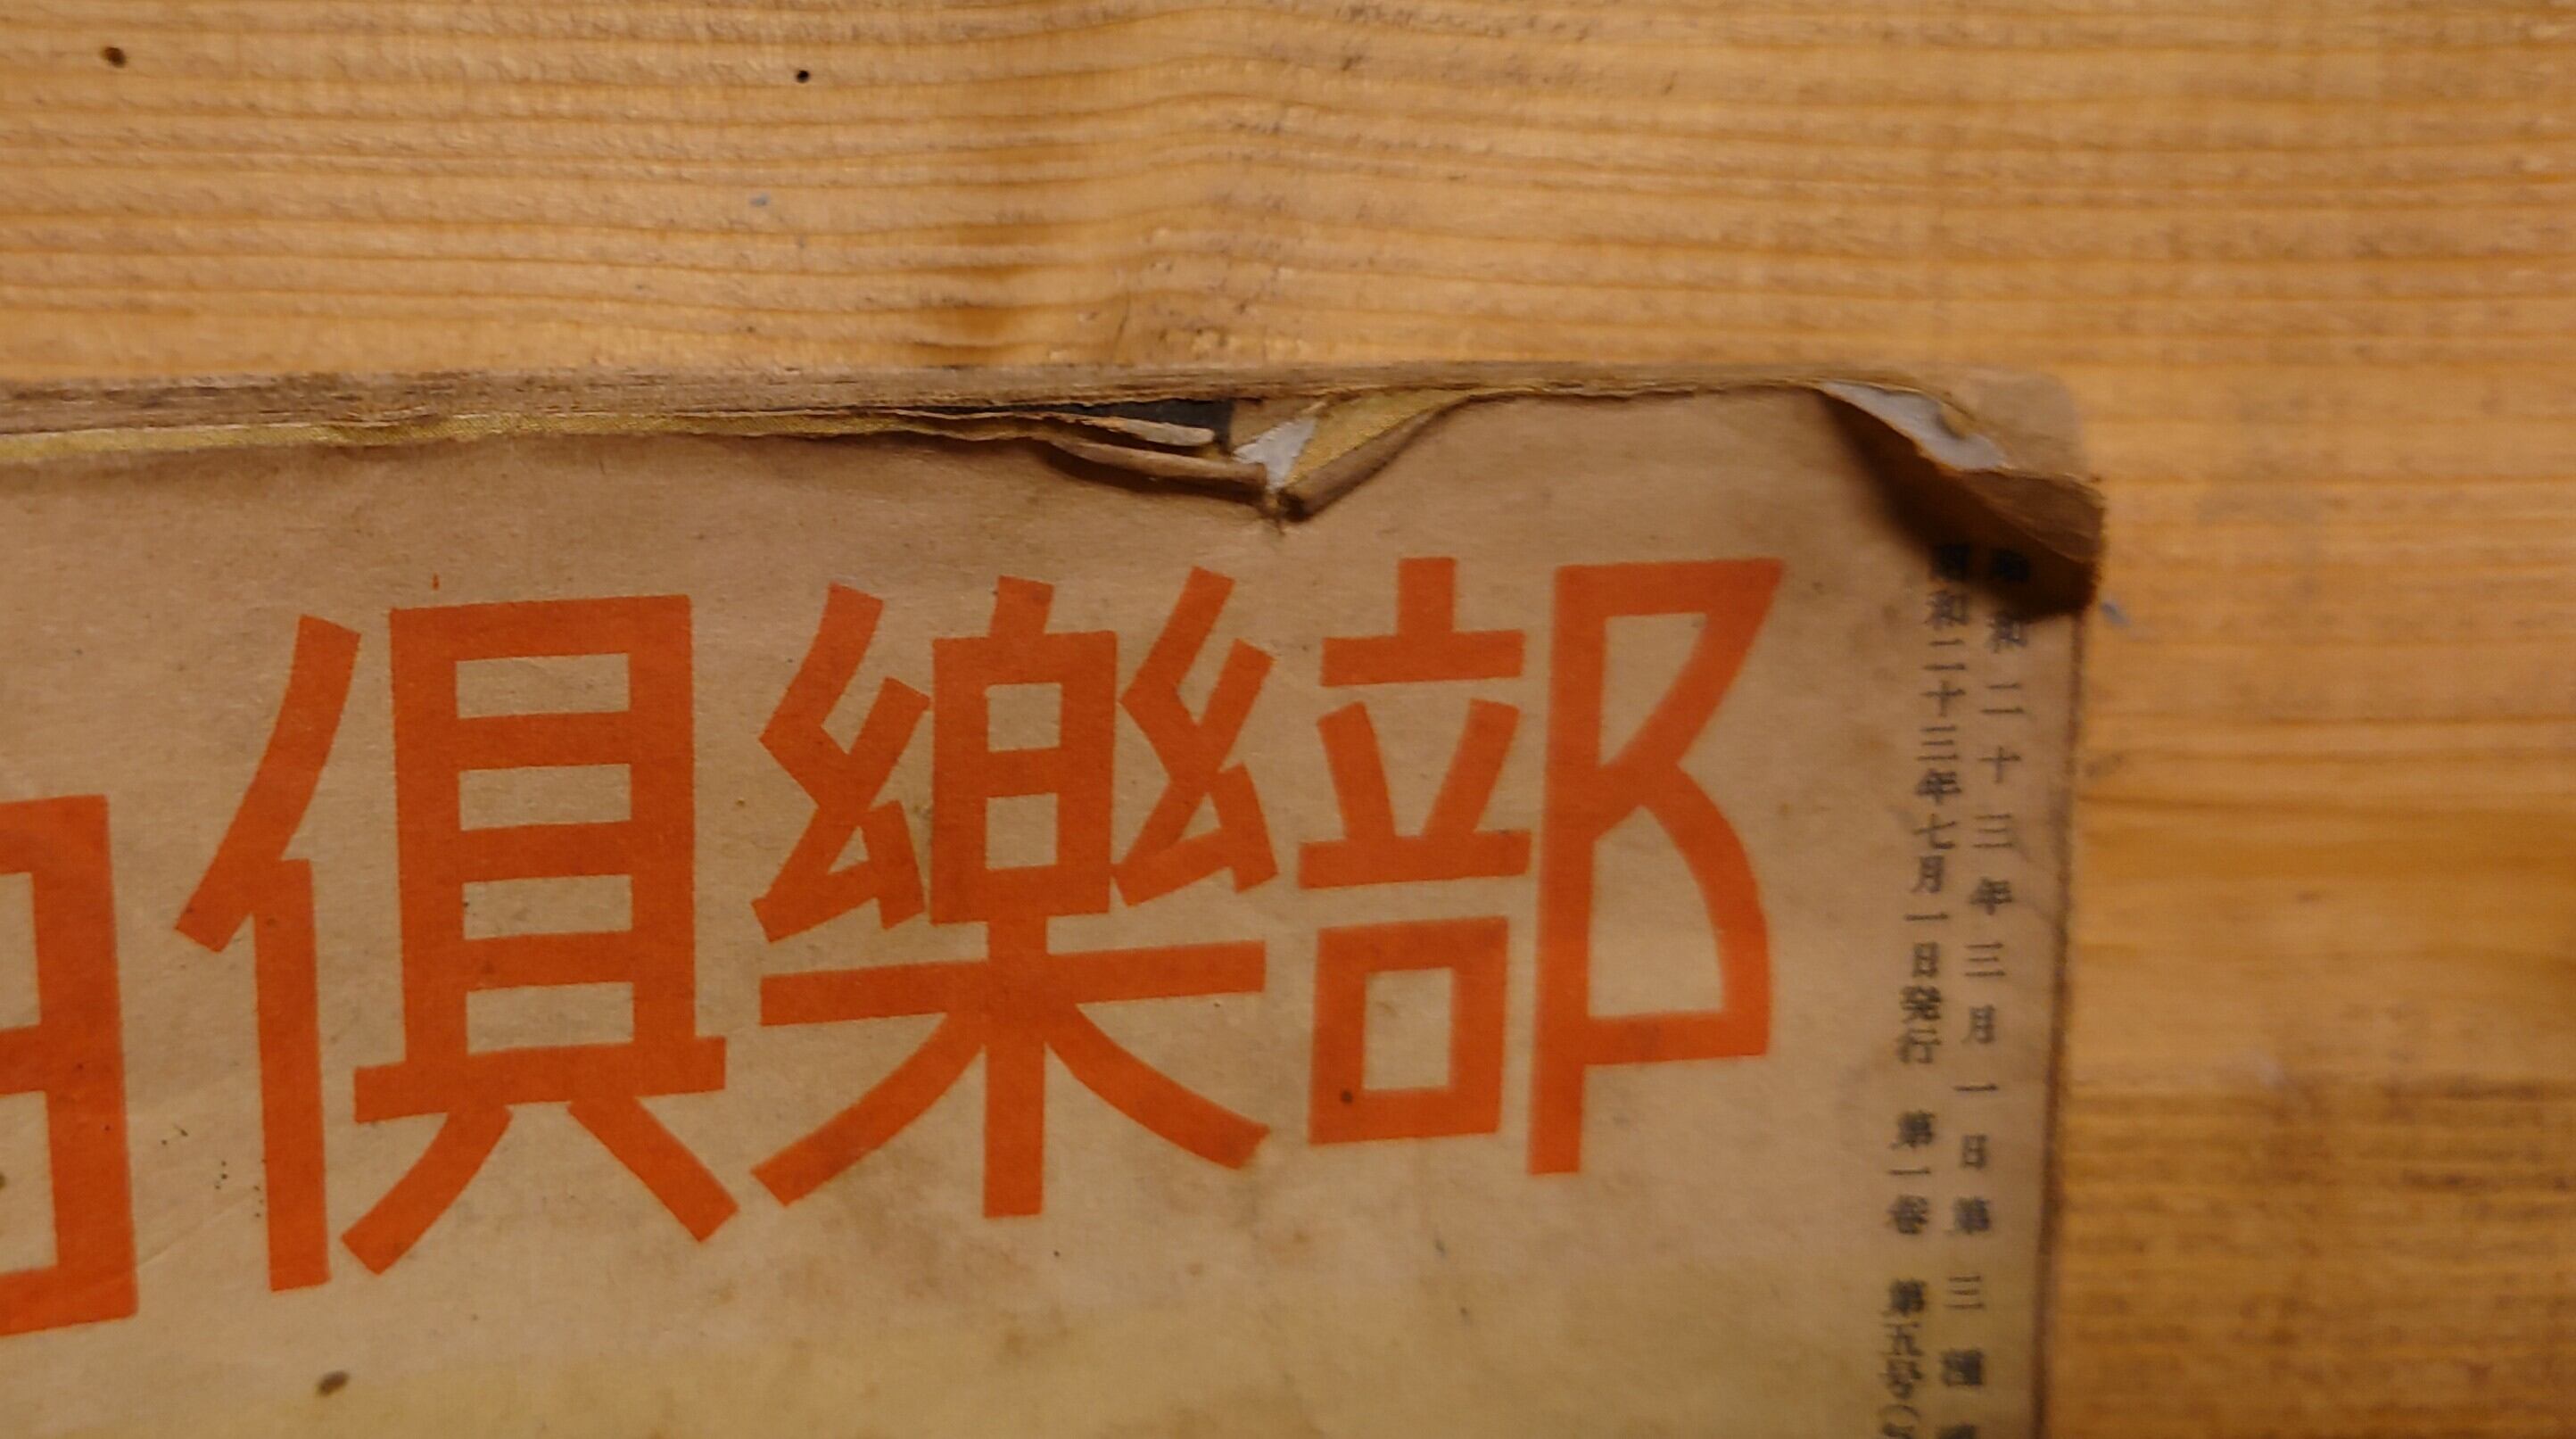 俱樂部
昭和二十三年三月一日第三種
昭和二十三年七月一日発行 第一巻 第五号(